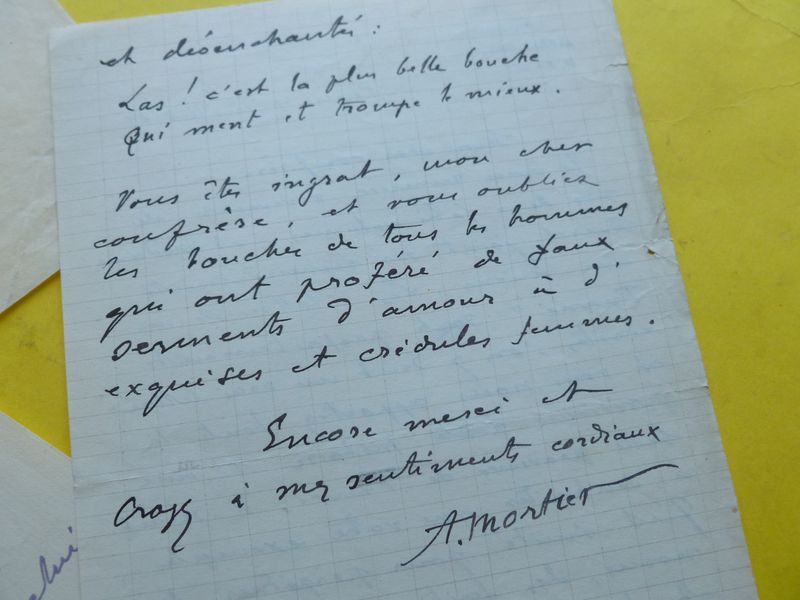 et désenchanté :
Las ! c'est la plus belle bouche
Qui ment et trompe le mieux.
Vous êtes ingrat, mon cher
confrère, et vous oubliez
les bouches de tous les hommes
qui ont proféré de faux
serments d'amour à d'
exquises et crédules femmes.
Encore merci et
croyez à mes sentiments cordiaux
A. Mortier